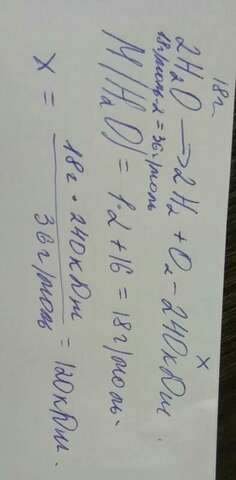 18г x
2H₂O → 2H₂ + O₂ - 240кДж
18г/моль·2 = 36г/моль
M(H₂O) = 1·2 + 16 = 18г/моль.
x = 18г · 240кДж / 36г/моль = 120кДж.